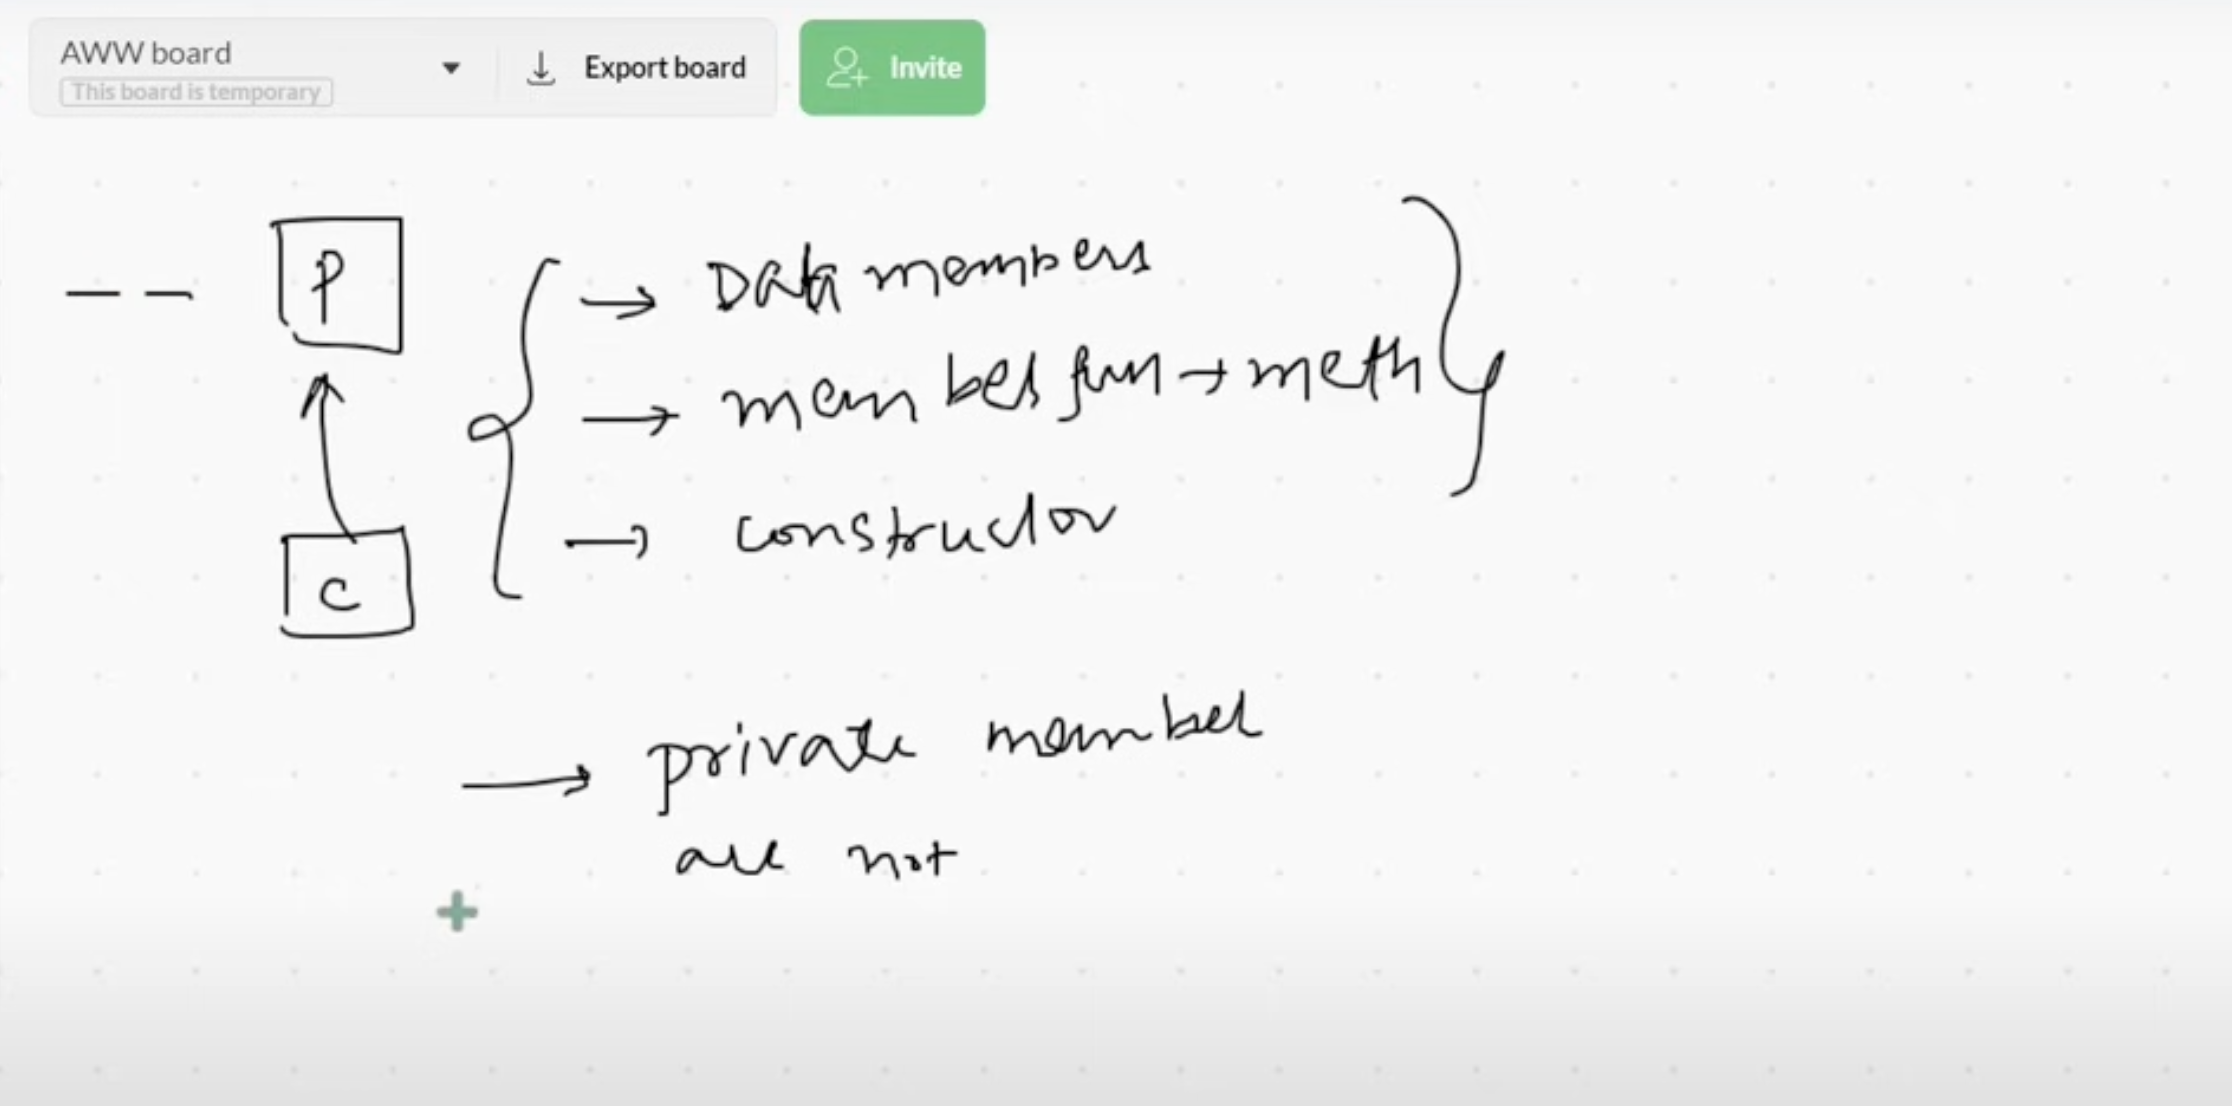 AWW board
This board is temporary
Export board
Invite
P
Data members
member fun → meth
constructor
C
private member
are not